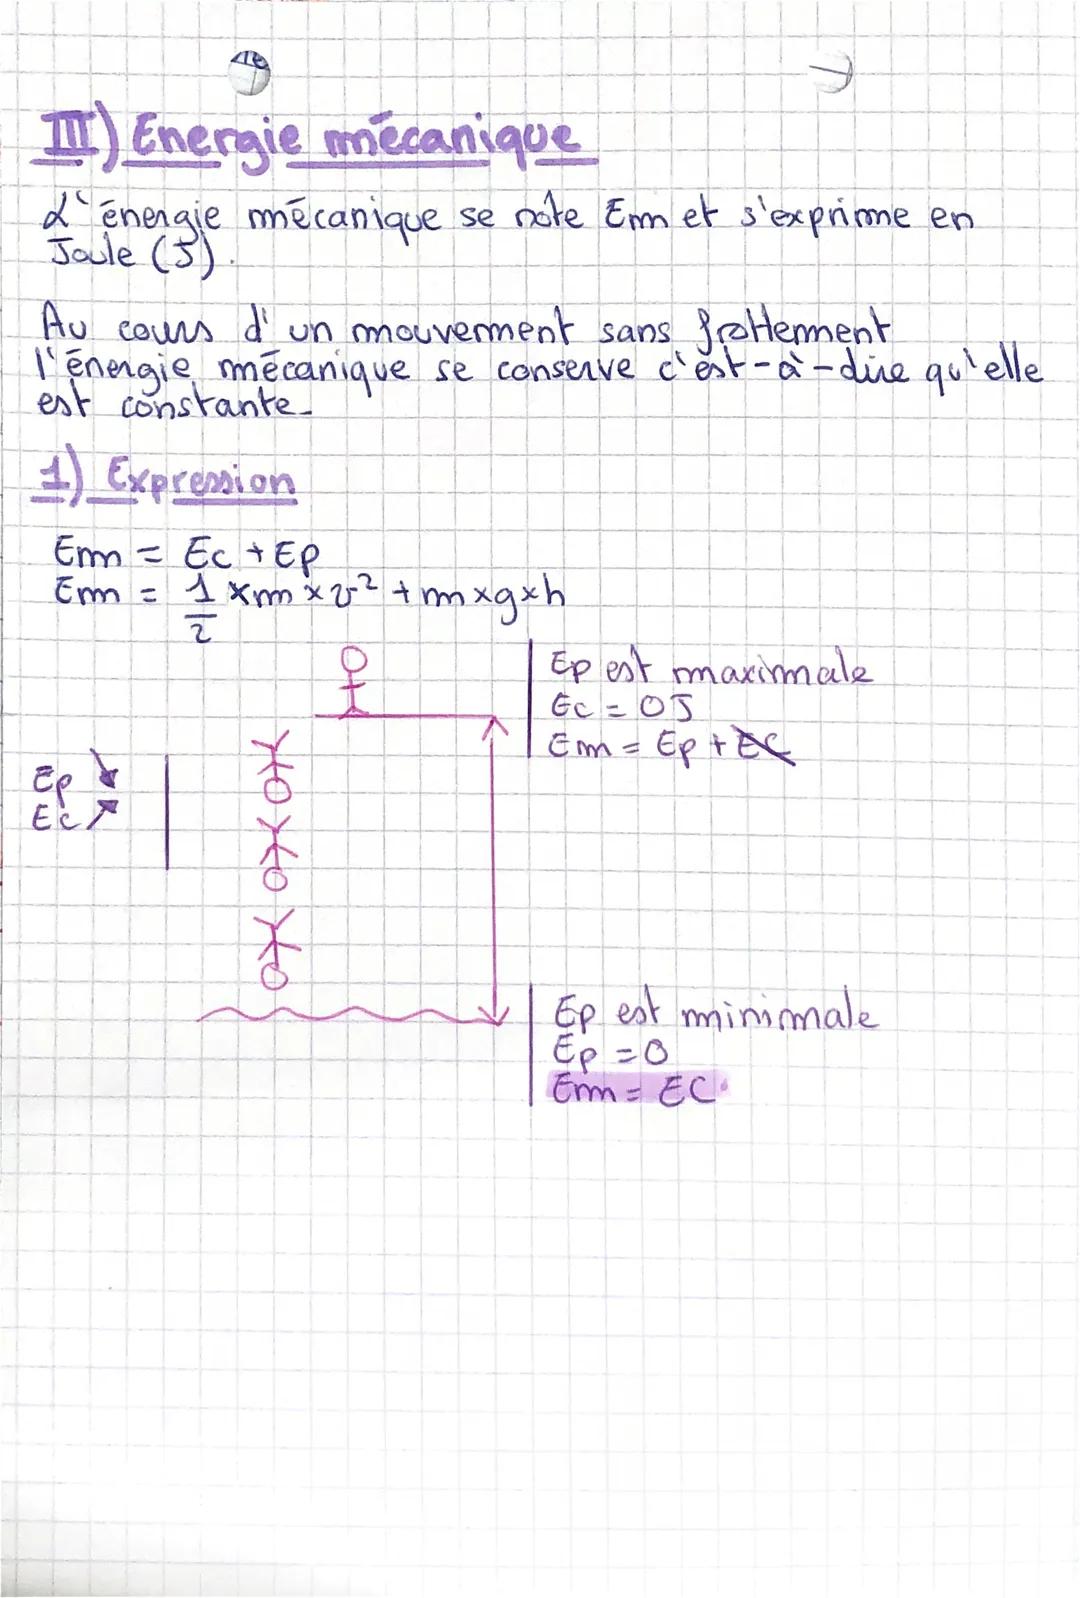 III) Energie mécanique
L'énergie mécanique se note Em et s'exprime en
Joule (J).
Au cours d'un mouvement sans frottement
l'énergie mécanique se conserve c'est-à-dire qu'elle
est constante.
1) Expression
Em = Ec + Ep
Em = 1/2 x m x v² + m x g x h
Ep est maximale
Ec = 0 J
Em = Ep + Ec
Ep ↘
Ec ↗
Ep est minimale
Ep = 0
Em = EC